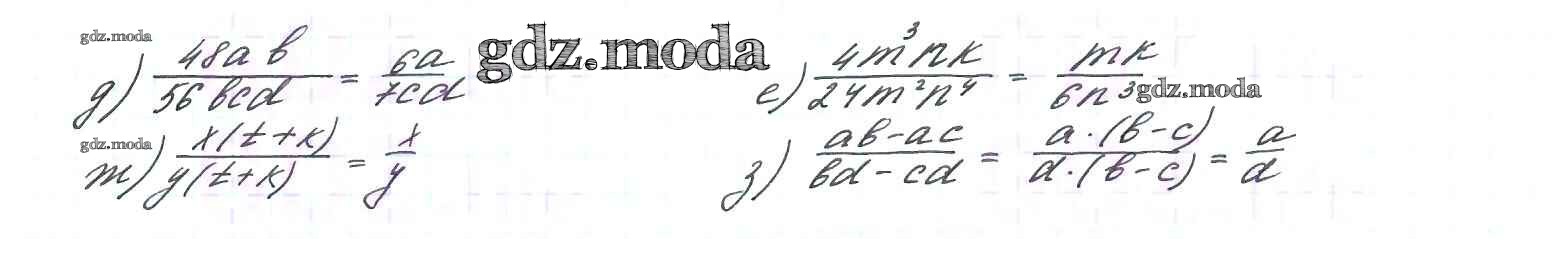 gdz.moda
д) 48ab/56bcd = 6a/7cd gdz.moda е) 4m³nk/24m²n⁴ = mk/6n³ gdz.moda
gdz.moda
ж) x(t+k)/y(t+k) = x/y з) ab-ac/bd-cd = a·(b-c)/d·(b-c) = a/d